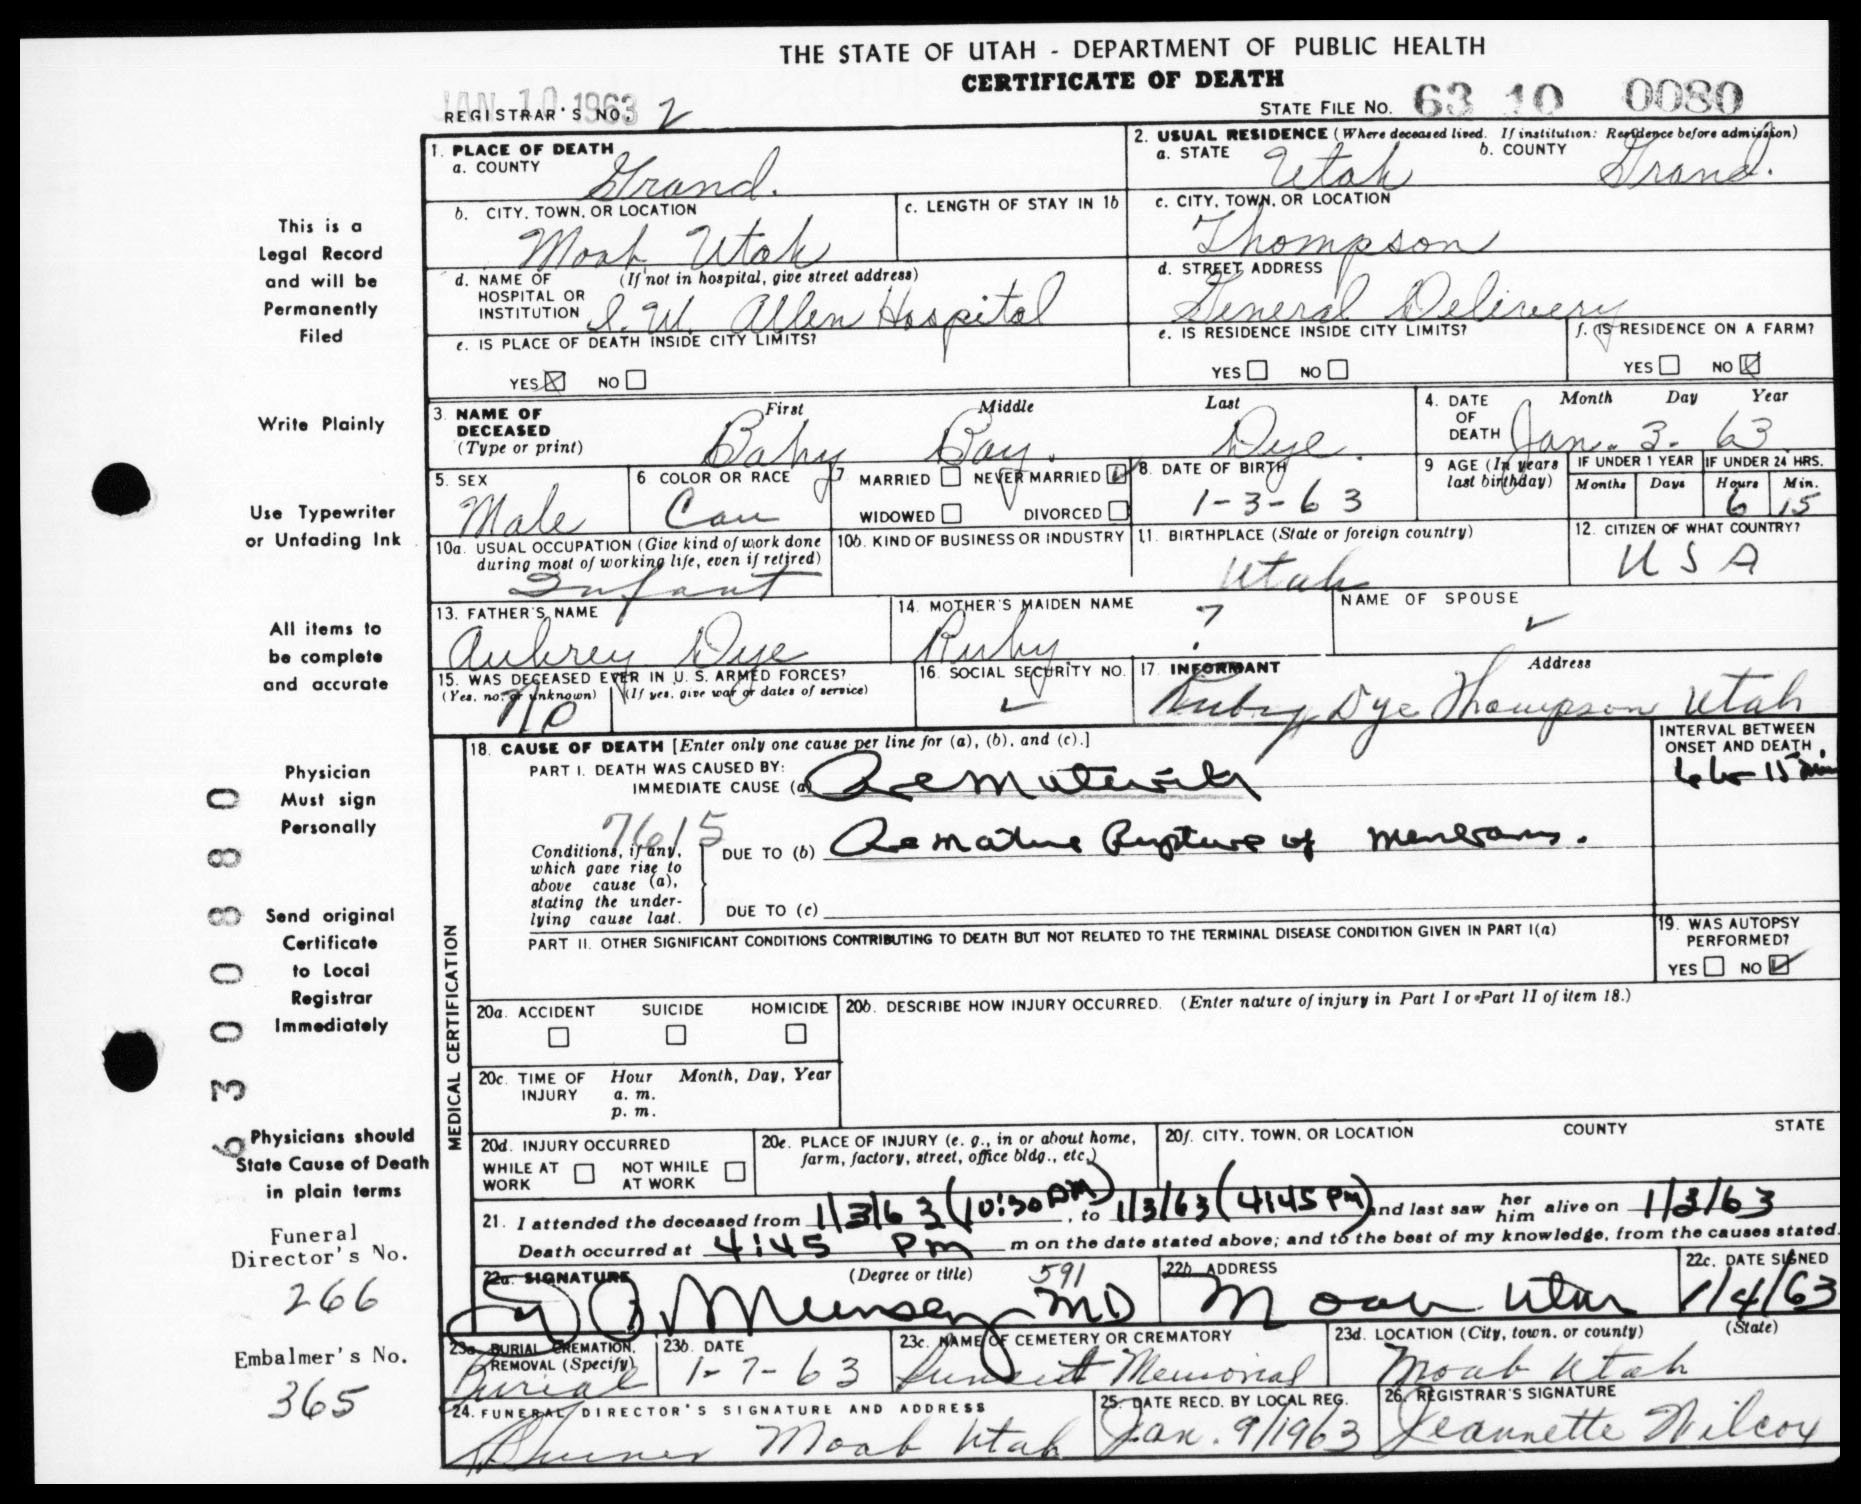 THE STATE OF UTAH - DEPARTMENT OF PUBLIC HEALTH
CERTIFICATE OF DEATH
JAN 10 1963
REGISTRAR'S NO. 2
STATE FILE NO. 63 10 0080
1. PLACE OF DEATH
a. COUNTY Grand.
2. USUAL RESIDENCE (Where deceased lived. If institution: Residence before admission)
a. STATE Utah b. COUNTY Grand.
b. CITY, TOWN, OR LOCATION Moab Utah
c. LENGTH OF STAY IN 1b
c. CITY, TOWN, OR LOCATION Thompson
d. NAME OF HOSPITAL OR INSTITUTION (If not in hospital, give street address) I.W. Allen Hospital
d. STREET ADDRESS General Delivery
e. IS PLACE OF DEATH INSIDE CITY LIMITS?
YES NO
e. IS RESIDENCE INSIDE CITY LIMITS?
YES NO
f. IS RESIDENCE ON A FARM?
YES NO
3. NAME OF DECEASED (Type or print) First Middle Last
Baby Boy. Dye.
4. DATE OF DEATH Month Day Year
Jan. 3. 63
5. SEX Male
6 COLOR OR RACE Cau
7 MARRIED NEVER MARRIED
WIDOWED DIVORCED
8. DATE OF BIRTH 1-3-63
9 AGE (In years last birthday)
IF UNDER 1 YEAR Months Days
IF UNDER 24 HRS. Hours 6 Min. 15
10a. USUAL OCCUPATION (Give kind of work done during most of working life, even if retired) Infant
10b. KIND OF BUSINESS OR INDUSTRY
11. BIRTHPLACE (State or foreign country) Utah
12. CITIZEN OF WHAT COUNTRY? USA
13. FATHER'S NAME Aubrey Dye
14. MOTHER'S MAIDEN NAME Ruby. ?
NAME OF SPOUSE ✓
15. WAS DECEASED EVER IN U. S. ARMED FORCES?
(Yes, no, or unknown) (If yes, give war or dates of service)
No
16. SOCIAL SECURITY NO. ✓
17. INFORMANT Address
Ruby Dye Thompson Utah
MEDICAL CERTIFICATION
18. CAUSE OF DEATH [Enter only one cause per line for (a), (b), and (c).]
INTERVAL BETWEEN ONSET AND DEATH
PART I. DEATH WAS CAUSED BY:
IMMEDIATE CAUSE (a) Prematurity 6 hr 15 min
7615
Conditions, if any, which gave rise to above cause (a), stating the underlying cause last.
DUE TO (b) Premature Rupture of Membranes.
DUE TO (c)
PART II. OTHER SIGNIFICANT CONDITIONS CONTRIBUTING TO DEATH BUT NOT RELATED TO THE TERMINAL DISEASE CONDITION GIVEN IN PART I(a)
19. WAS AUTOPSY PERFORMED?
YES NO
20a. ACCIDENT SUICIDE HOMICIDE
20b. DESCRIBE HOW INJURY OCCURRED. (Enter nature of injury in Part I or Part II of item 18.)
20c. TIME OF INJURY Hour Month, Day, Year
a. m.
p. m.
20d. INJURY OCCURRED
WHILE AT WORK NOT WHILE AT WORK
20e. PLACE OF INJURY (e. g., in or about home, farm, factory, street, office bldg., etc.)
20f. CITY, TOWN, OR LOCATION COUNTY STATE
21. I attended the deceased from 1/3/63 (10:30 AM), to 1/3/63 (4:45 PM) and last saw her him alive on 1/3/63
Death occurred at 4:45 Pm m on the date stated above; and to the best of my knowledge, from the causes stated.
22a. SIGNATURE (Degree or title) 591
Munsey MD
22b. ADDRESS Moab Utah
22c. DATE SIGNED 1/4/63
23a. BURIAL, CREMATION, REMOVAL (Specify) Burial
23b. DATE 1-7-63
23c. NAME OF CEMETERY OR CREMATORY Sunset Memorial
23d. LOCATION (City, town, or county) (State)
Moab Utah
24. FUNERAL DIRECTOR'S SIGNATURE AND ADDRESS
Moab Utah
25. DATE RECD. BY LOCAL REG. Jan. 9/1963
26. REGISTRAR'S SIGNATURE Jeannette Wilcox
This is a
Legal Record
and will be
Permanently
Filed
Write Plainly
Use Typewriter
or Unfading Ink
All items to
be complete
and accurate
Physician
Must sign
Personally
Send original
Certificate
to Local
Registrar
Immediately
Physicians should
State Cause of Death
in plain terms
Funeral
Director's No.
266
Embalmer's No.
365
63 0 0 8 8 0